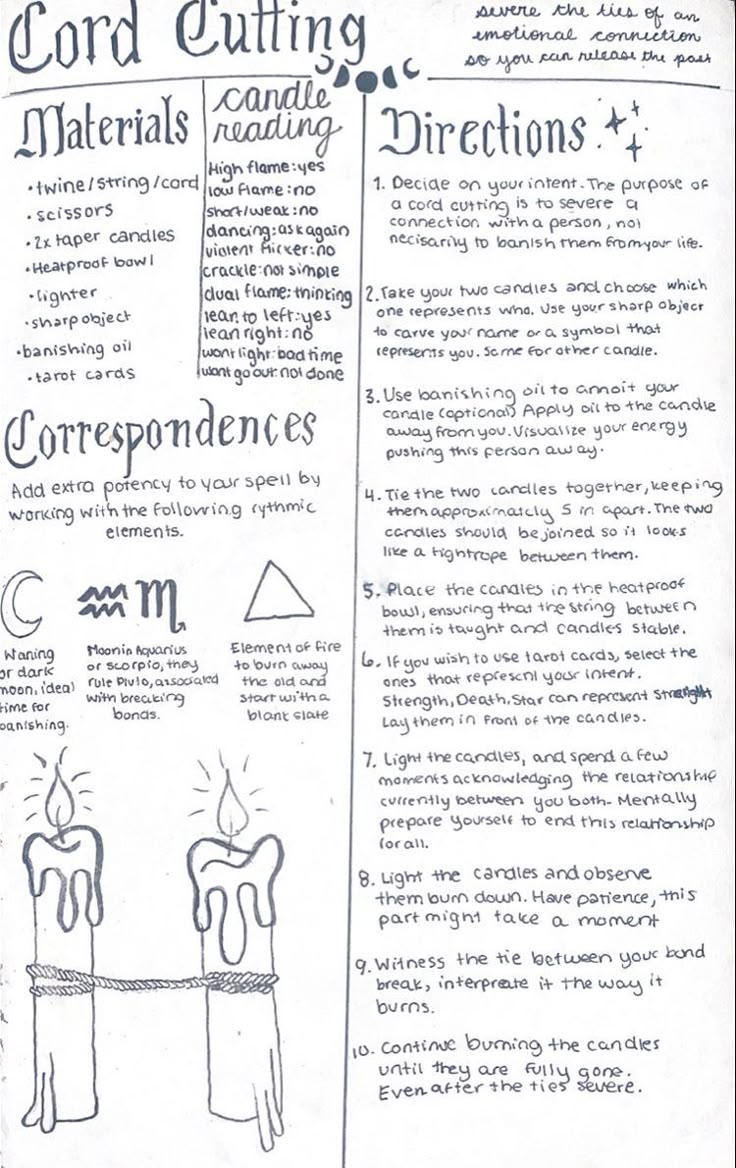 Cord Cutting
severe the ties of an
emotional connection
so you can release the past
Materials
• twine/string/cord
• scissors
• 2x taper candles
• Heatproof bowl
• lighter
• sharp object
• banishing oil
• tarot cards
candle
reading
High flame: yes
low flame: no
short/weak: no
dancing: ask again
violent flicker: no
crackle: not simple
dual flame: thinking
lean to left: yes
lean right: no
wont light: bad time
wont go out: not done
Correspondences
Add extra potency to your spell by
working with the following rythmic
elements.
Waning
or dark
moon, ideal
time for
banishing.
♒ ♏
Moon in Aquarius
or scorpio, they
rule Pluto, associated
with breaking
bonds.
Element of fire
to burn away
the old and
start with a
blank slate
Directions
1. Decide on your intent. The purpose of
a cord cutting is to severe a
connection with a person, not
necisarily to banish them from your life.
2. Take your two candles and choose which
one represents who. Use your sharp object
to carve your name or a symbol that
represents you. Same for other candle.
3. Use banishing oil to annoit your
candle (optional) Apply oil to the candle
away from you. Visualize your energy
pushing this person away.
4. Tie the two candles together, keeping
them approximately 5 in apart. The two
candles should be joined so it looks
like a tightrope between them.
5. Place the candles in the heatproof
bowl, ensuring that the string between
them is taught and candles stable.
6. If you wish to use tarot cards, select the
ones that represent your intent.
Strength, Death, Star can represent
Lay them in front of the candles.
7. Light the candles, and spend a few
moments acknowledging the relationship
currently between you both. Mentally
prepare yourself to end this relationship
for all.
8. Light the candles and observe
them burn down. Have patience, this
part might take a moment
9. Witness the tie between your bond
break, interpreate it the way it
burns.
10. Continue burning the candles
until they are fully gone.
Even after the ties severe.